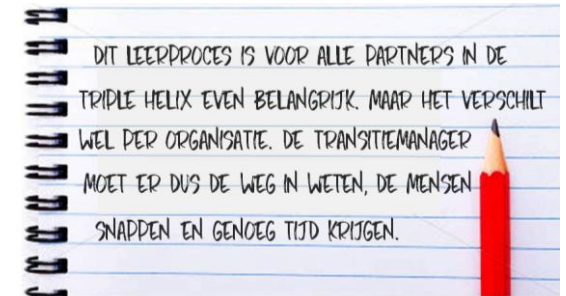 DIT LEERPROCES IS VOOR ALLE PARTNERS IN DE
TRIPLE HELIX EVEN BELANGRIJK. MAAR HET VERSCHILT
WEL PER ORGANISATIE. DE TRANSITIEMANAGER
MOET ER DUS DE WEG IN WETEN, DE MENSEN
SNAPPEN EN GENOEG TIJD KRIJGEN.